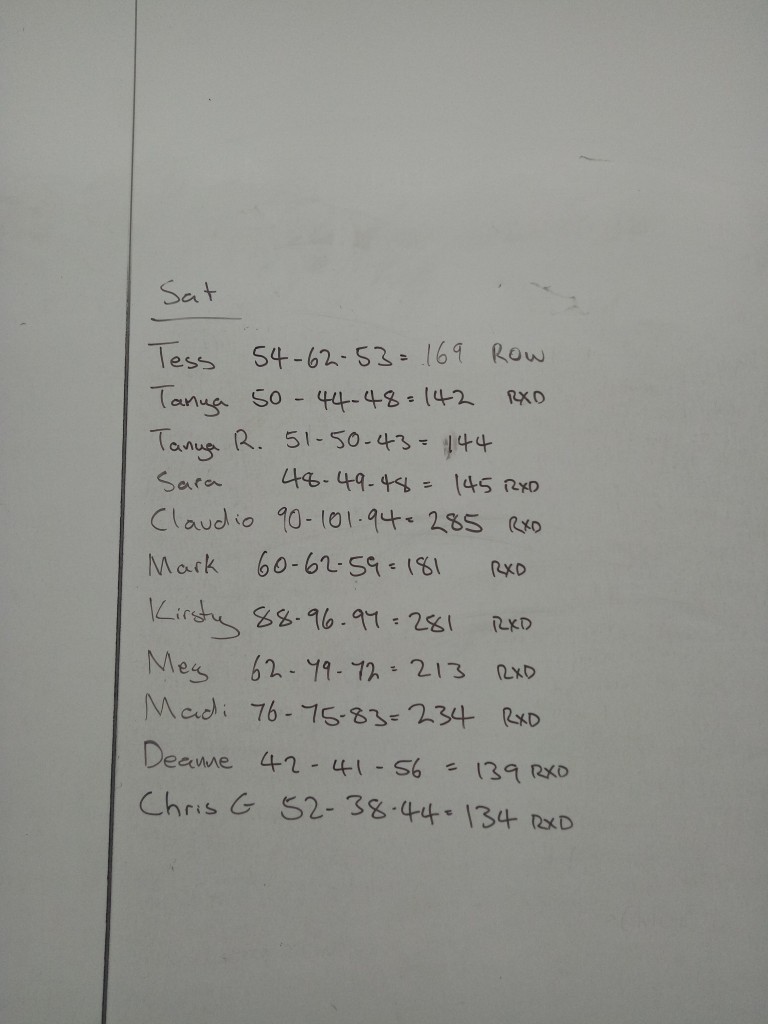 Sat
Tess 54-62-53= 169 ROW
Tanya 50 - 44-48=142 RXD
Tanya R. 51-50-43= 144
Sara 48-49-48 = 145 RXD
Claudio 90-101-94= 285 RXD
Mark 60-62-59=181 RXD
Kirsty 88-96-97=281 RXD
Meg 62-79-72=213 RXD
Madi 76-75-83=234 RXD
Deanne 42-41-56 = 139 RXD
Chris G 52-38-44=134 RXD